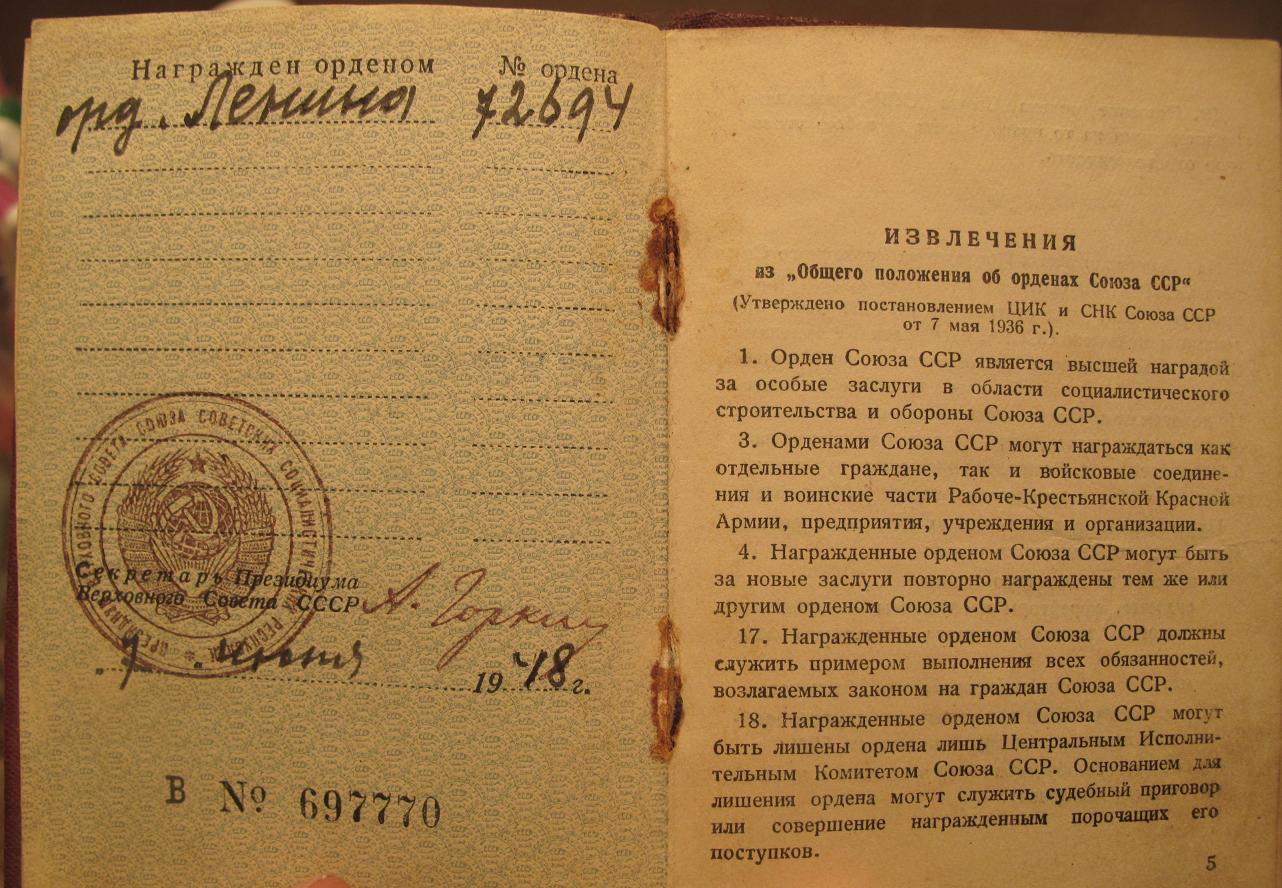 Награжден орденом № ордена
орд. Ленина 72694
СОЮЗА СОВЕТСКИХ СОЦИАЛИСТИЧЕСКИХ РЕСПУБЛИК ★ ПРЕЗИДИУМ ВЕРХОВНОГО СОВЕТА
Секретарь Президиума
Верховного Совета СССР А. Горкин
„7 „ июня 1948 г.
В № 697770
ИЗВЛЕЧЕНИЯ
из „Общего положения об орденах Союза ССР“
(Утверждено постановлением ЦИК и СНК Союза ССР
от 7 мая 1936 г.).
1. Орден Союза ССР является высшей наградой
за особые заслуги в области социалистического
строительства и обороны Союза ССР.
3. Орденами Союза ССР могут награждаться как
отдельные граждане, так и войсковые соедине-
ния и воинские части Рабоче-Крестьянской Красной
Армии, предприятия, учреждения и организации.
4. Награжденные орденом Союза ССР могут быть
за новые заслуги повторно награждены тем же или
другим орденом Союза ССР.
17. Награжденные орденом Союза ССР должны
служить примером выполнения всех обязанностей,
возлагаемых законом на граждан Союза ССР.
18. Награжденные орденом Союза ССР могут
быть лишены ордена лишь Центральным Исполни-
тельным Комитетом Союза ССР. Основанием для
лишения ордена могут служить судебный приговор
или совершение награжденным порочащих его
поступков.
5